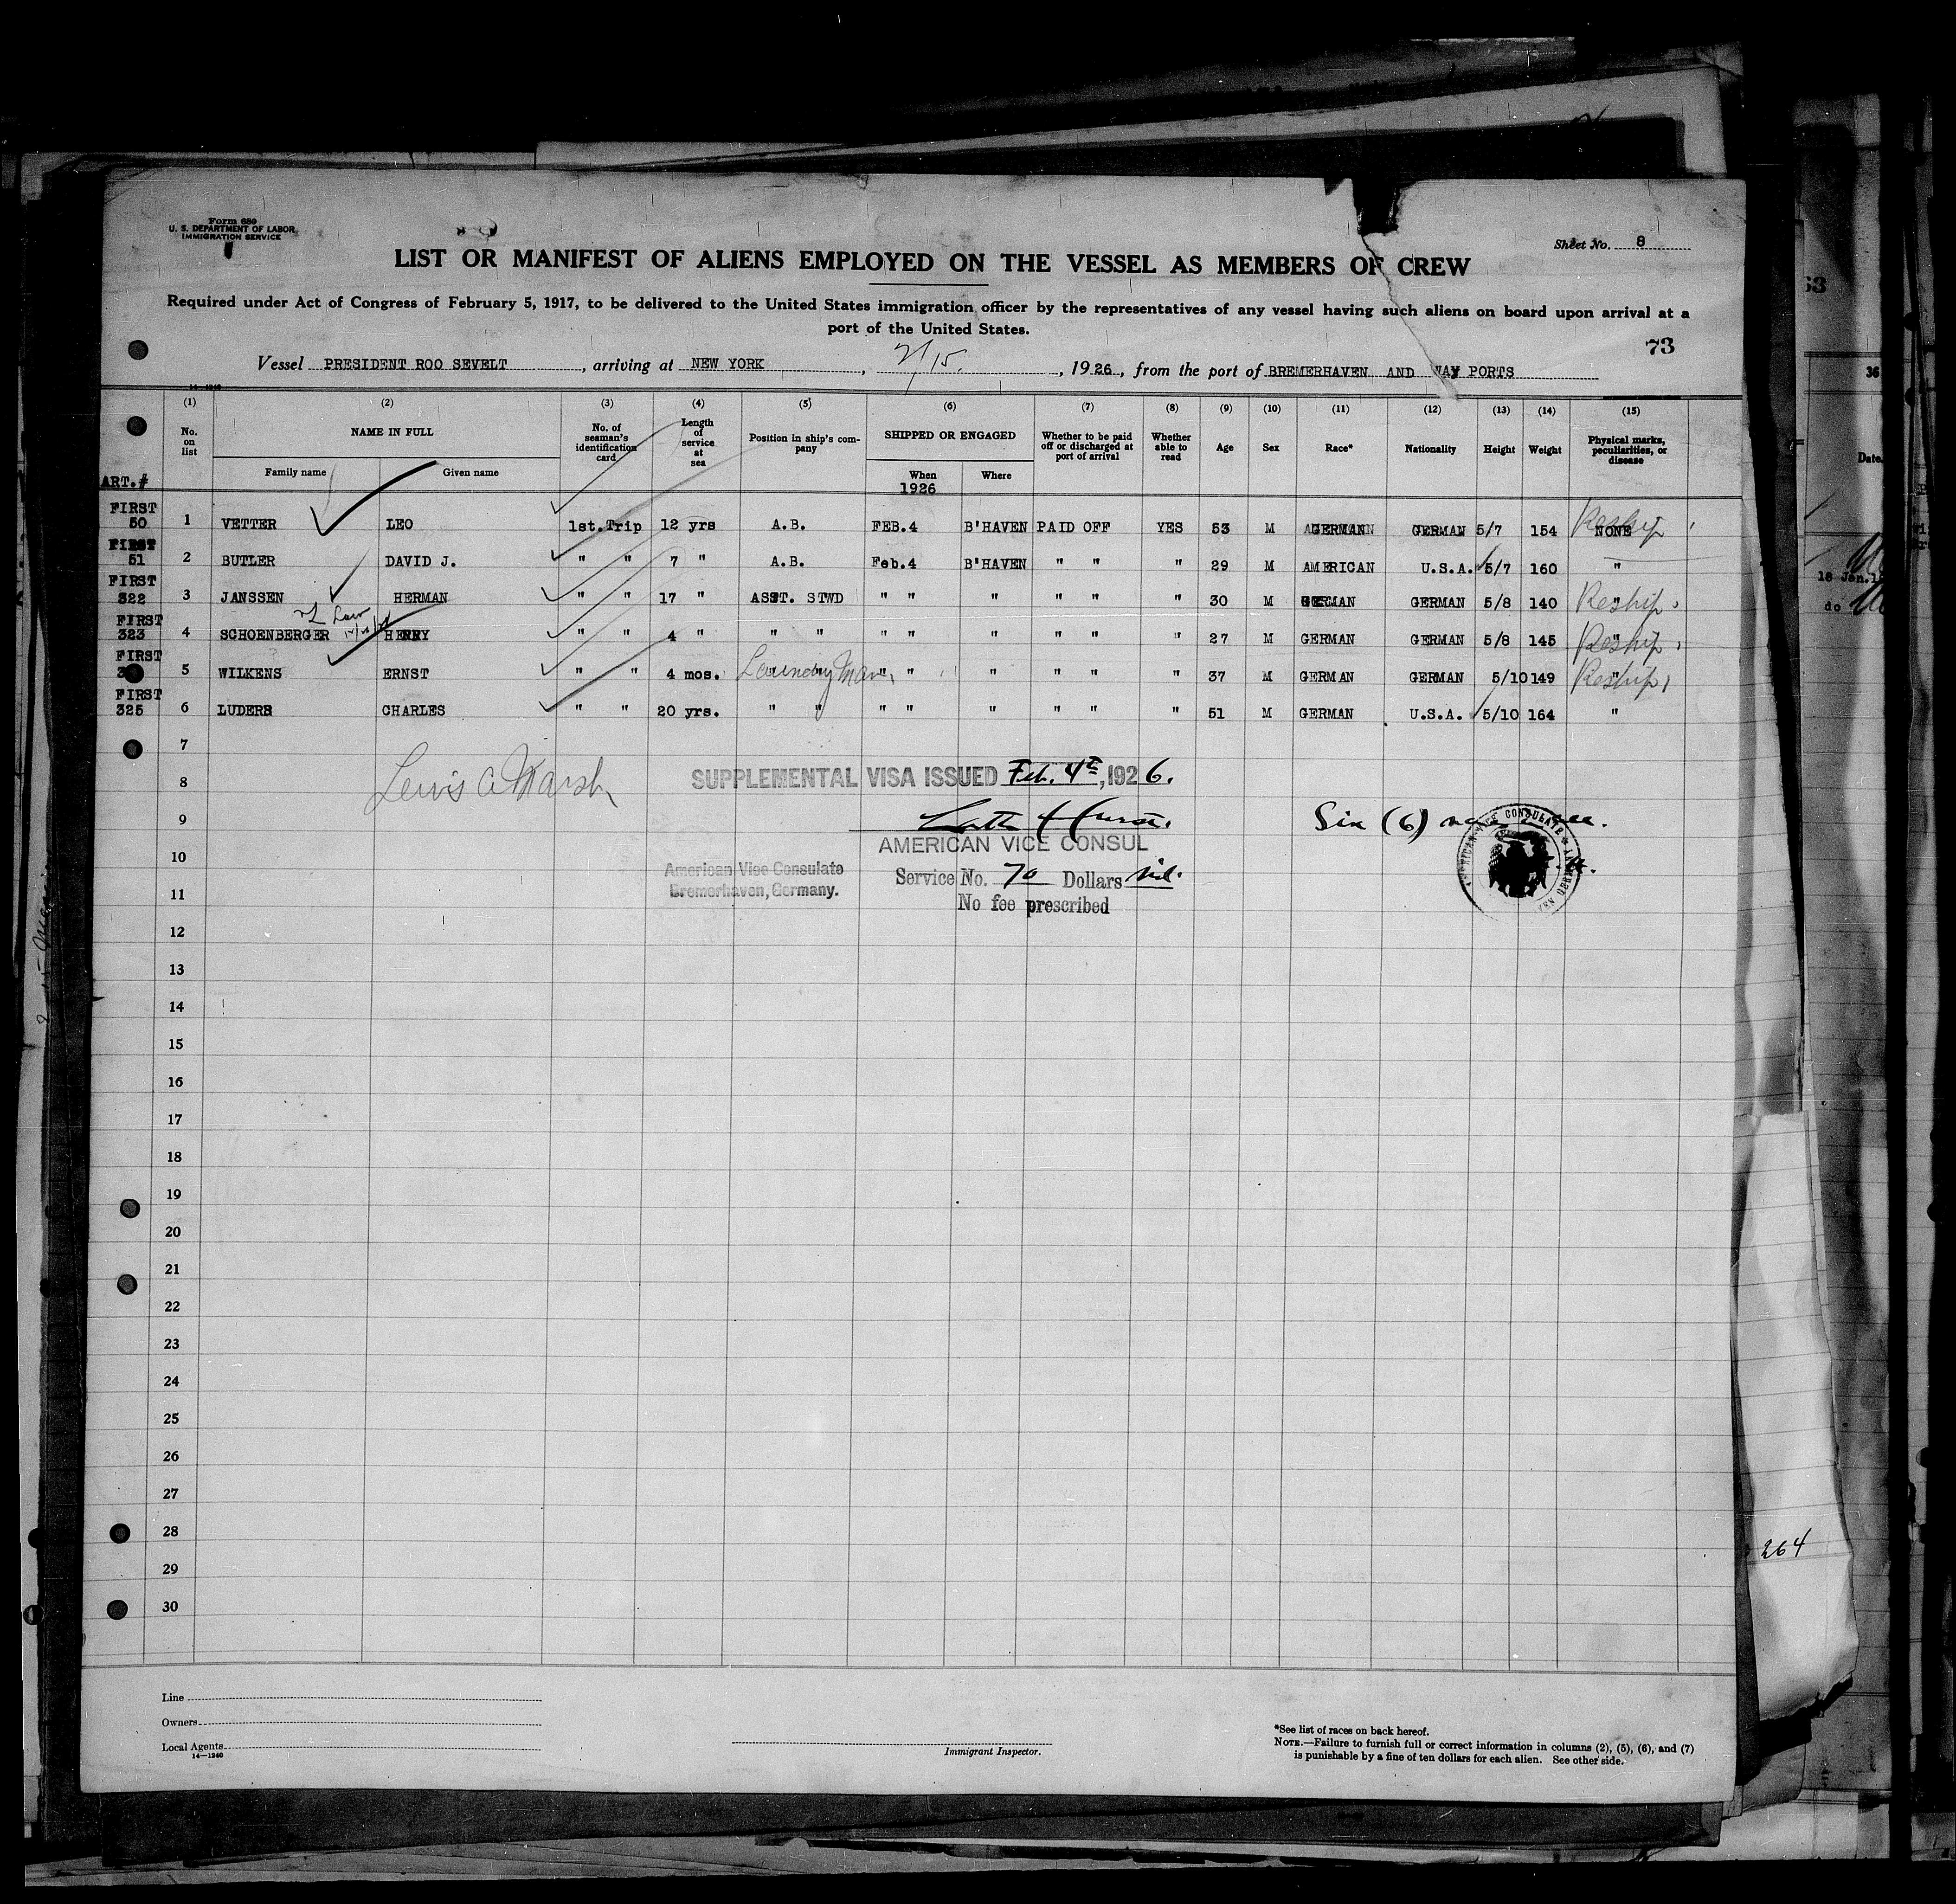 Form 680
U. S. DEPARTMENT OF LABOR
IMMIGRATION SERVICE
Sheet No. 8
LIST OR MANIFEST OF ALIENS EMPLOYED ON THE VESSEL AS MEMBERS OF CREW
Required under Act of Congress of February 5, 1917, to be delivered to the United States immigration officer by the representatives of any vessel having such aliens on board upon arrival at a
port of the United States.
73
Vessel PRESIDENT ROO SEVELT, arriving at NEW YORK, 2/15, 1926, from the port of BREMERHAVEN AND WAY PORTS
14-1240
(1) (2) (3) (4) (5) (6) (7) (8) (9) (10) (11) (12) (13) (14) (15)
No. on list NAME IN FULL Family name Given name No. of seaman's identification card Length of service at sea Position in ship's company SHIPPED OR ENGAGED When Where Whether to be paid off or discharged at port of arrival Whether able to read Age Sex Race* Nationality Height Weight Physical marks, peculiarities, or disease
ART.# 1926
FIRST 50 1 VETTER LEO 1st.Trip 12 yrs A.B. FEB.4 B'HAVEN PAID OFF YES 53 M GERMAN GERMAN 5/7 154 NONE Reship
FIRST 51 2 BUTLER DAVID J. " " 7 " A.B. Feb.4 B'HAVEN " " " 29 M AMERICAN U.S.A. 5/7 160 "
FIRST 322 3 JANSSEN HERMAN " " 17 " ASST. STWD " " " " " " 30 M GERMAN GERMAN 5/8 140 " Reship
FIRST 323 4 SCHOENBERGER HENRY " " 4 " " " " " " " " " 27 M GERMAN GERMAN 5/8 145 " Reship
FIRST 5 WILKENS ERNST " " 4 mos. " " Laundry Man " " " " " " 37 M GERMAN GERMAN 5/10 149 " Reship
FIRST 325 6 LUDERS CHARLES " " 20 yrs. " " " " " " " " 51 M GERMAN U.S.A. 5/10 164 "
7
8 Lewis A Marsh SUPPLEMENTAL VISA ISSUED Feb. 4th, 1926.
9 Six (6)
AMERICAN VICE CONSUL
10 American Vice Consulate Service No. 70 Dollars nil.
11 Bremerhaven, Germany.
No fee prescribed
12
13
14
15
16
17
18
19
20
21
22
23
24
25
26
27
28
29
30
Line
Owners
Local Agents
14—1240
Immigrant Inspector.
*See list of races on back hereof.
NOTE.—Failure to furnish full or correct information in columns (2), (5), (6), and (7)
is punishable by a fine of ten dollars for each alien. See other side.
36
Date.
18 Jan.
do
264